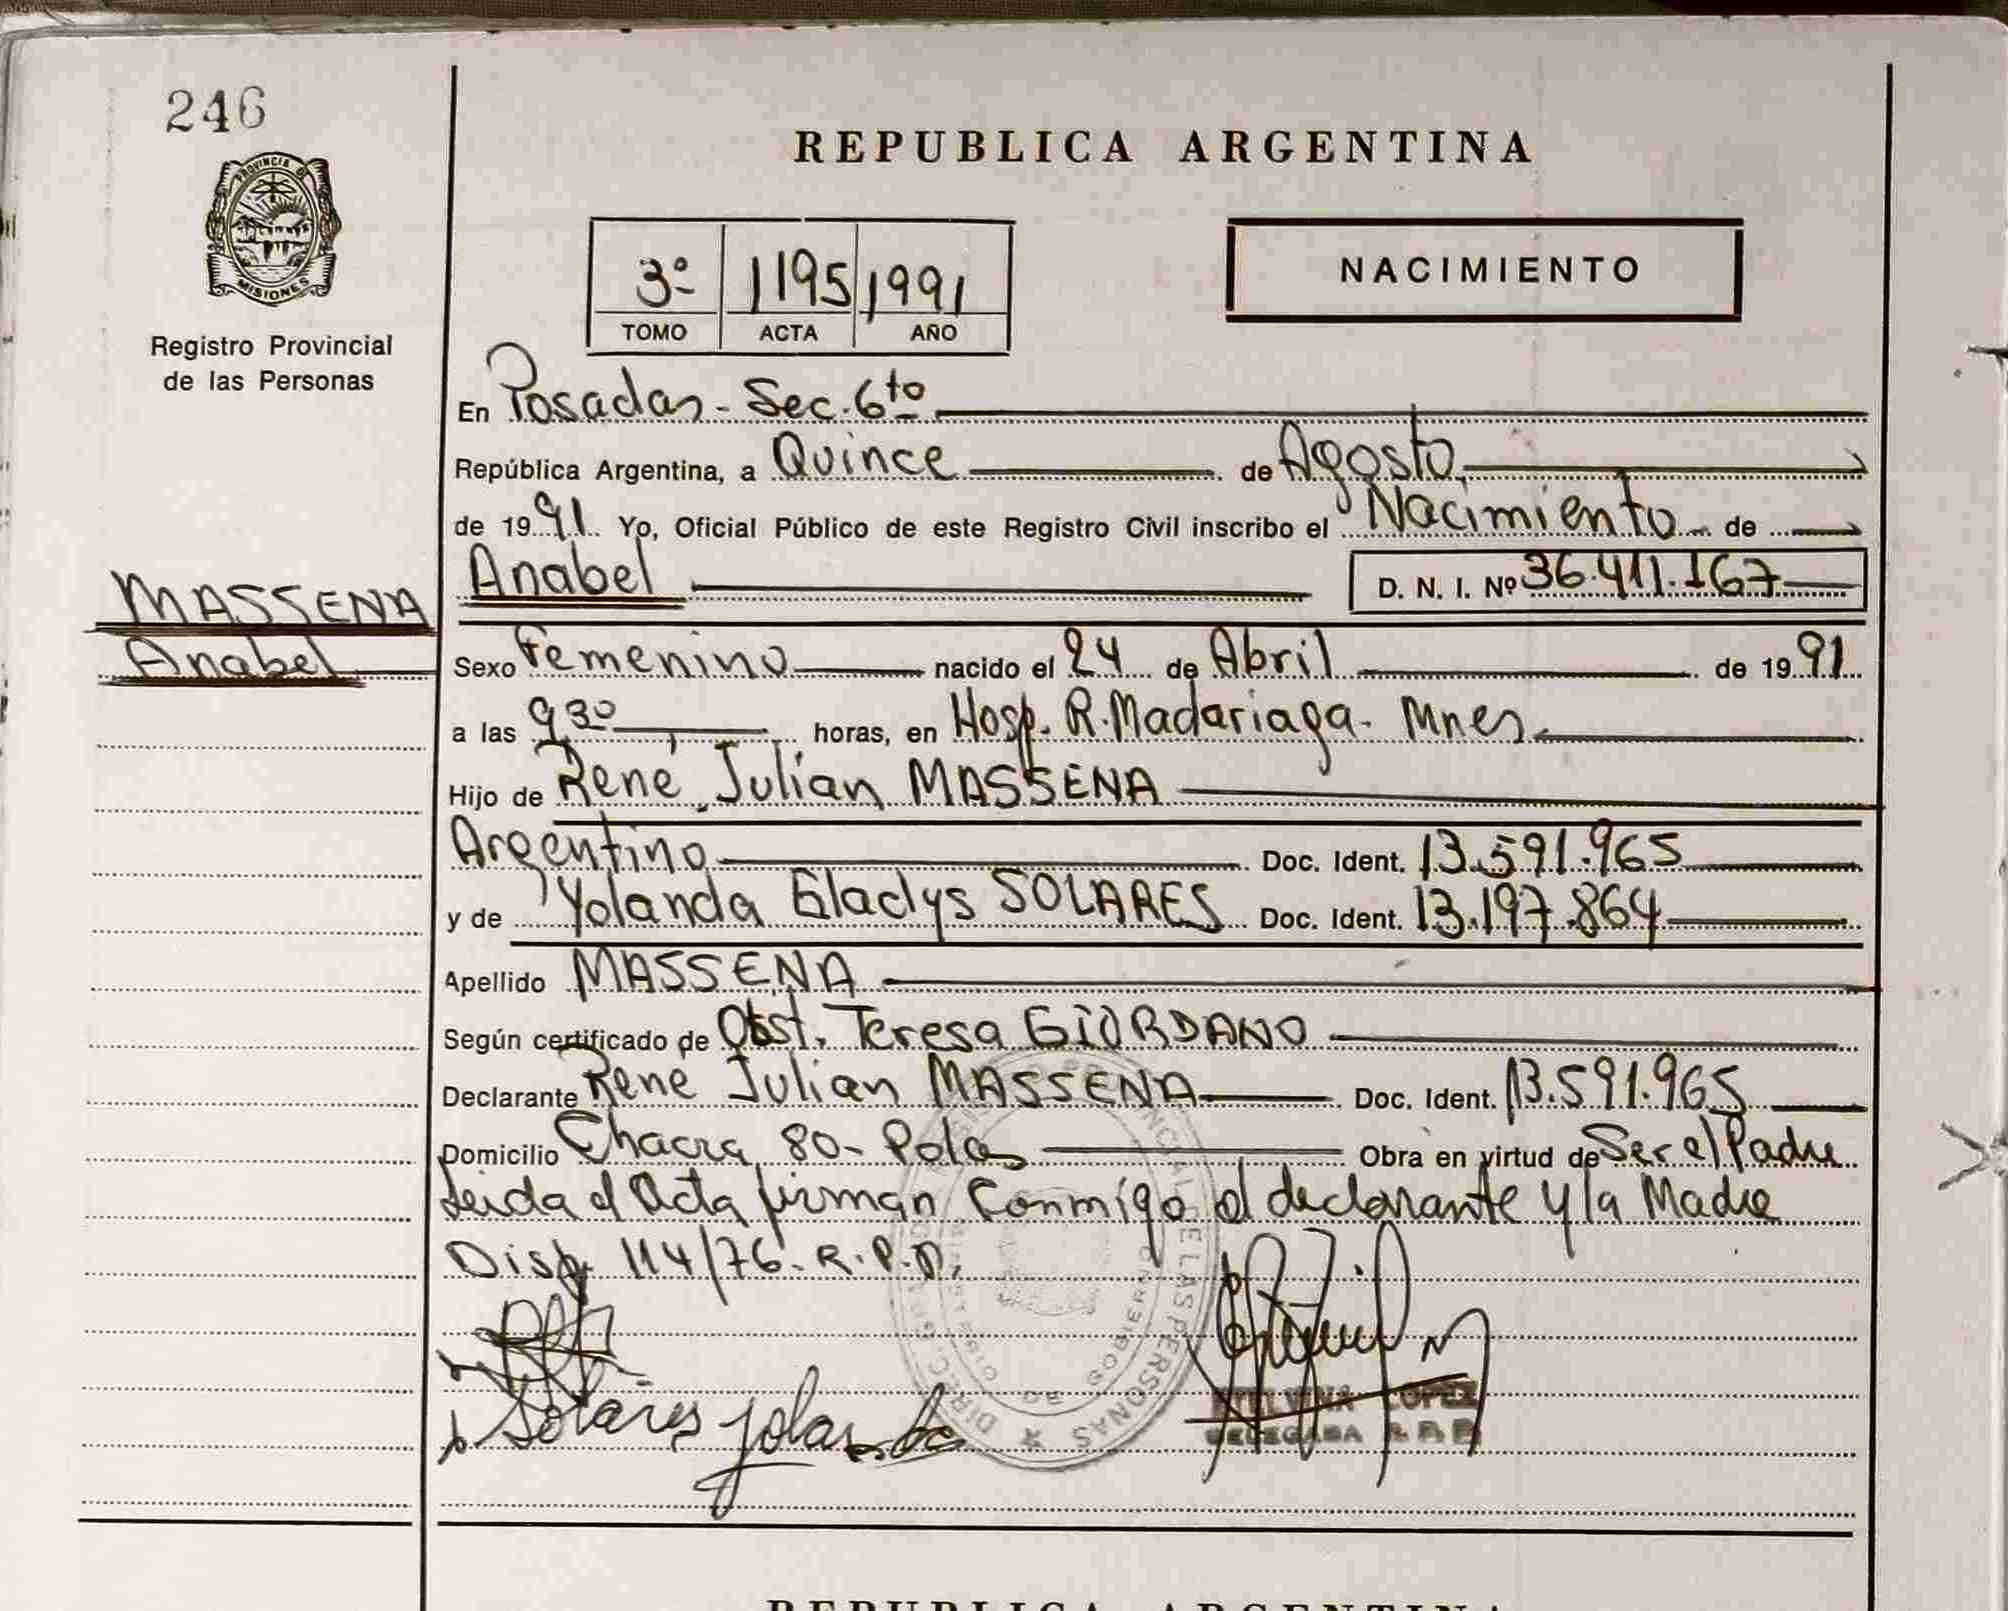 246
PROVINCIA D
MISIONES
Registro Provincial
de las Personas
REPUBLICA ARGENTINA
3º 1195 1991
TOMO ACTA AÑO
NACIMIENTO
En Posadas - Sec. 6to
República Argentina, a Quince de Agosto
de 1991 Yo, Oficial Público de este Registro Civil inscribo el Nacimiento de
Anabel D. N. I. Nº 36.411.167
MASSENA
Anabel
Sexo Femenino nacido el 24 de Abril de 1991
a las 9 30 horas, en Hosp. R. Madariaga - Mnes
Hijo de René Julián MASSENA
Argentino Doc. Ident. 13.591.965
y de Yolanda Gladys SOLARES Doc. Ident. 13.197.864
Apellido MASSENA
Según certificado de Obst. Teresa GIORDANO
Declarante Rene Julian MASSENA Doc. Ident. 13.591.965
Domicilio Chacra 80 - Pdas Obra en virtud de Ser el Padre
Leida el Acta firman Conmigo el declarante y la Madre
Disp. 114/76 - R.P.P.
Solares Yolanda
LOPEZ
DELEGADA
DE LAS PERSONAS
DE GOBIERNO
REPUBLICA ARGENTINA